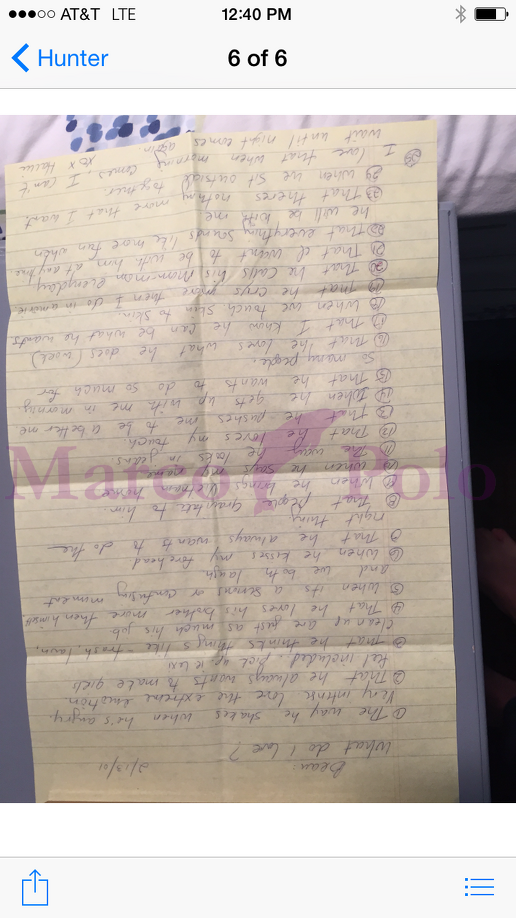 AT&T LTE
12:40 PM
Hunter
6 of 6
Beau: 2/13/01
What do I love?
① The way he shakes when he's angry
Very intense love the extreme emotion
② That he always wants to make girls
feel included - pick up
③ That he thinks things like - trash, lawn,
clean up are just as much his job
④ That he loves his brother more then himself
⑤ When its a serious or confusing moment
and we both laugh
⑥ When he kisses my forehead
⑦ That he always wants to do the
right thing.
⑧ That people to him.
⑨ When he brings home
⑩ When he says my name
⑪ The way he looks in jeans.
⑫ That he loves my touch
⑬ That he pushes me to be a better me.
⑭ When he gets up with me in morning
⑮ That he wants to do so much for
so many people.
⑯ That he loves what he does (work)
⑰ That I know he can be what he wants
⑱ When we touch skin to skin.
⑲ That he crys more then I do in a movie.
⑳ That he calls his mommom everyday
㉑ That I want to be with him at anytime.
㉒ That everything sounds like more fun when
he will be with me
㉓ That theres nothing more that I want.
When we sit outside together.
㉕ I love that when morning comes, I can't
wait until night comes again. xo x Hallie
Marco Polo